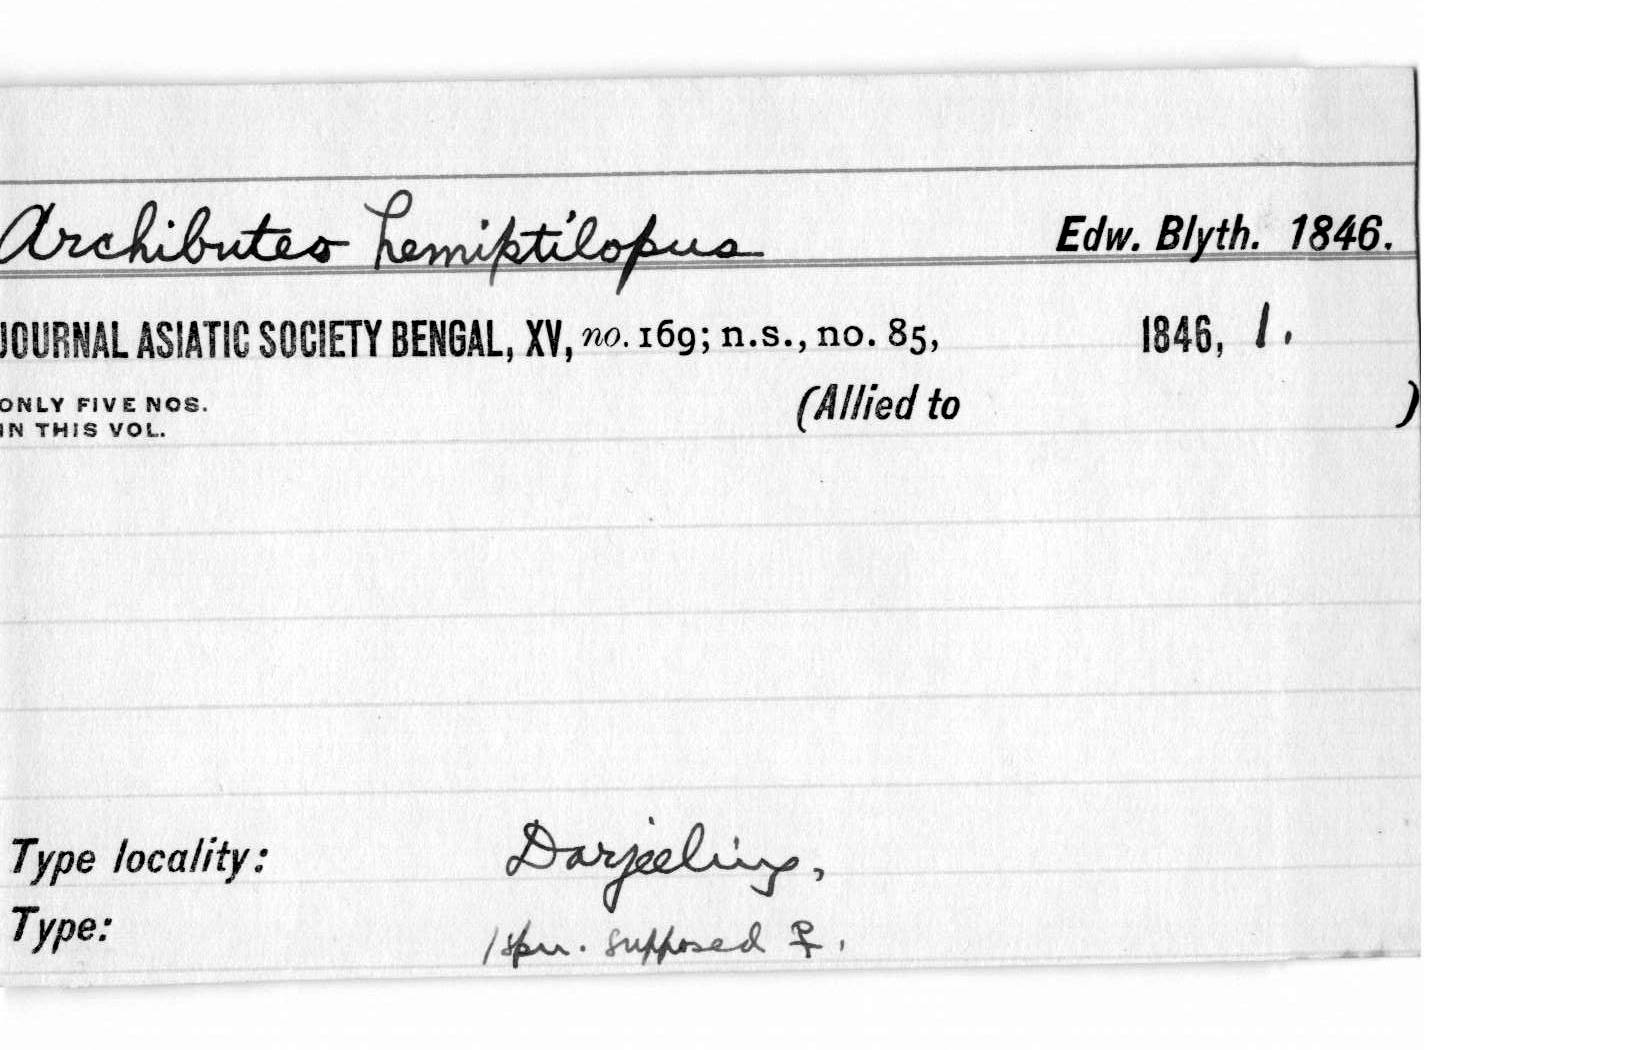 Archibuteo hemiptilopus Edw. Blyth. 1846.
JOURNAL ASIATIC SOCIETY BENGAL, XV, no. 169; n.s., no. 85, 1846, 1.
ONLY FIVE NOS.
IN THIS VOL.
(Allied to )
Type locality: Darjeeling,
Type: 1 spn. supposed ♀.